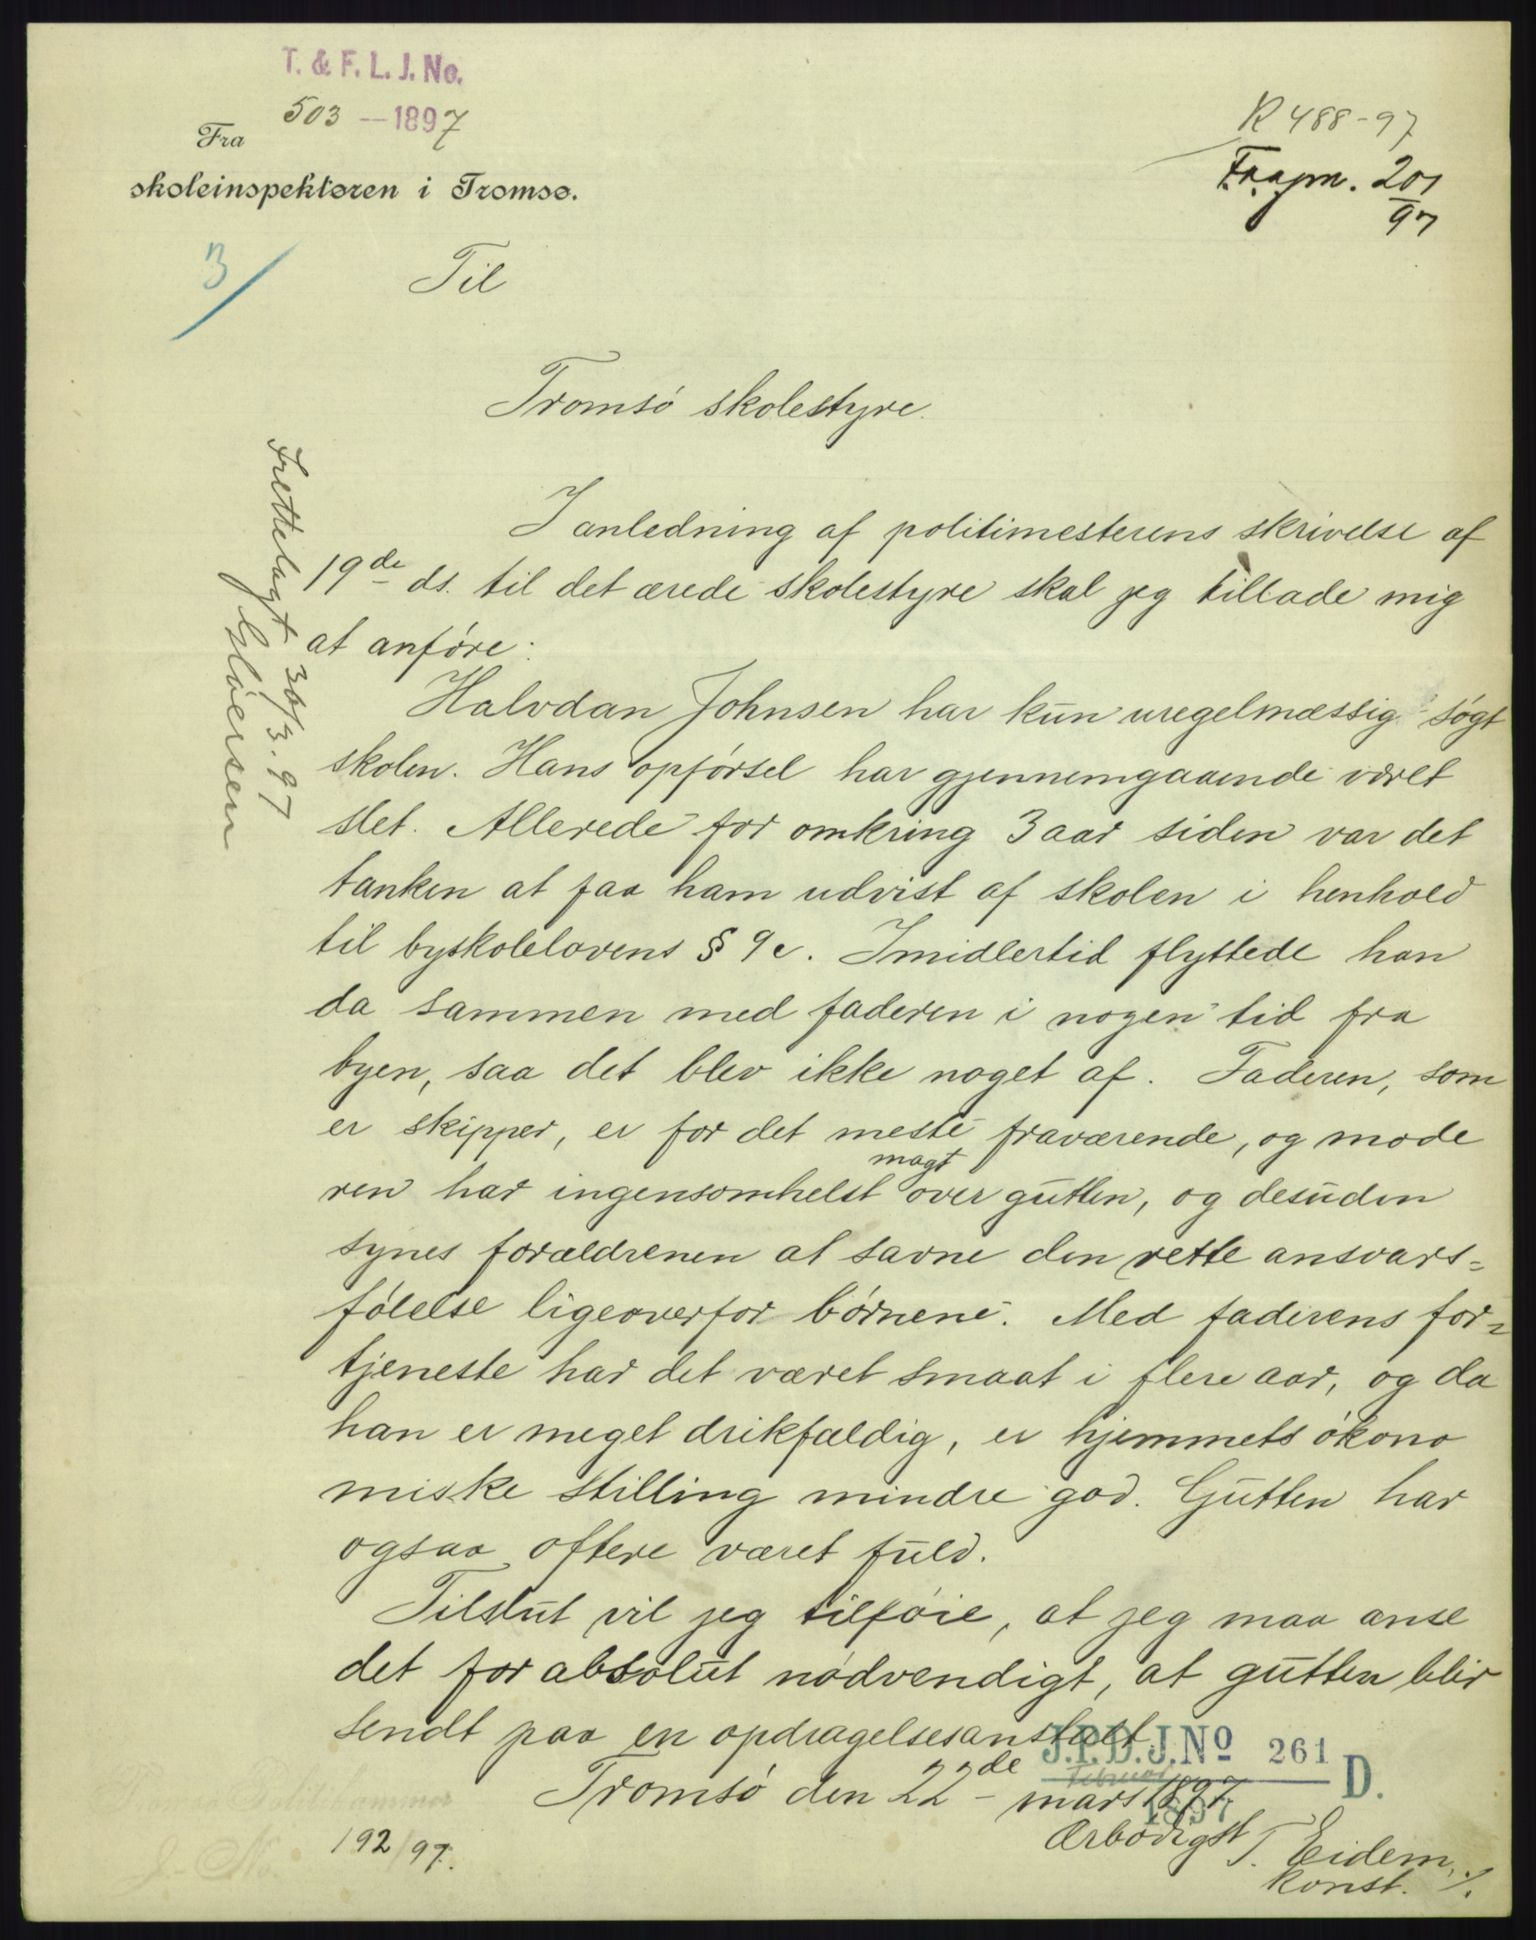 T. & F. L. J. No.
503 — 1897
Fra
skoleinspektøren i Tromsø.
R 488-97
Fragm. 201
97
3/
Til
Tromsö skolestyre.
I anledning af politimesterens skrivelse af
19de ds. til det ærede skolestyre skal jeg tillade mig
at anföre:
Halvdan Johnsen har kun uregelmæssig sögt
skolen. Hans opförsel har gjennemgaaende været
slet. Allerede for omkring 3 aar siden var det
tanken at faa ham udvist af skolen i henhold
til byskolelovens § 9c. Imidlertid flyttede han
da sammen med faderen i nogen tid fra
byen, saa det blev ikke noget af. Faderen, som
er skipper, er for det meste fraværende, og mode
magt
ren har ingensomhelst over gutten, og desuden
synes forældrenen at savne den rette ansvars=
fölelse ligeoverfor börnene. Med faderens for=
tjeneste har det været smaat i flere aar, og da
han er meget drikfældig, er hjemmets ökono
miske stilling mindre god. Gutten har
ogsaa oftere været fuld.
Tilslut vil jeg tilföie, at jeg maa anse
det for absolut nödvendigt, at gutten blir
sendt paa en opdragelsesanstalt.
J.P.D.J.No 261 D.
1897
Tromsö den 22de mars 1897.
Ærbödigst
T. Eidem,
konst. ⁒
Politikammer
J.-No.
192/97.
Frettelagt 30/3.97
Glöersen